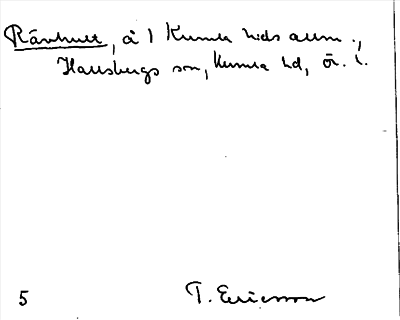 Rävhult, å l Kumla hds allm.,
Hallsbergs sn, Kumla hd, ör. l.
5 T. Ericsson